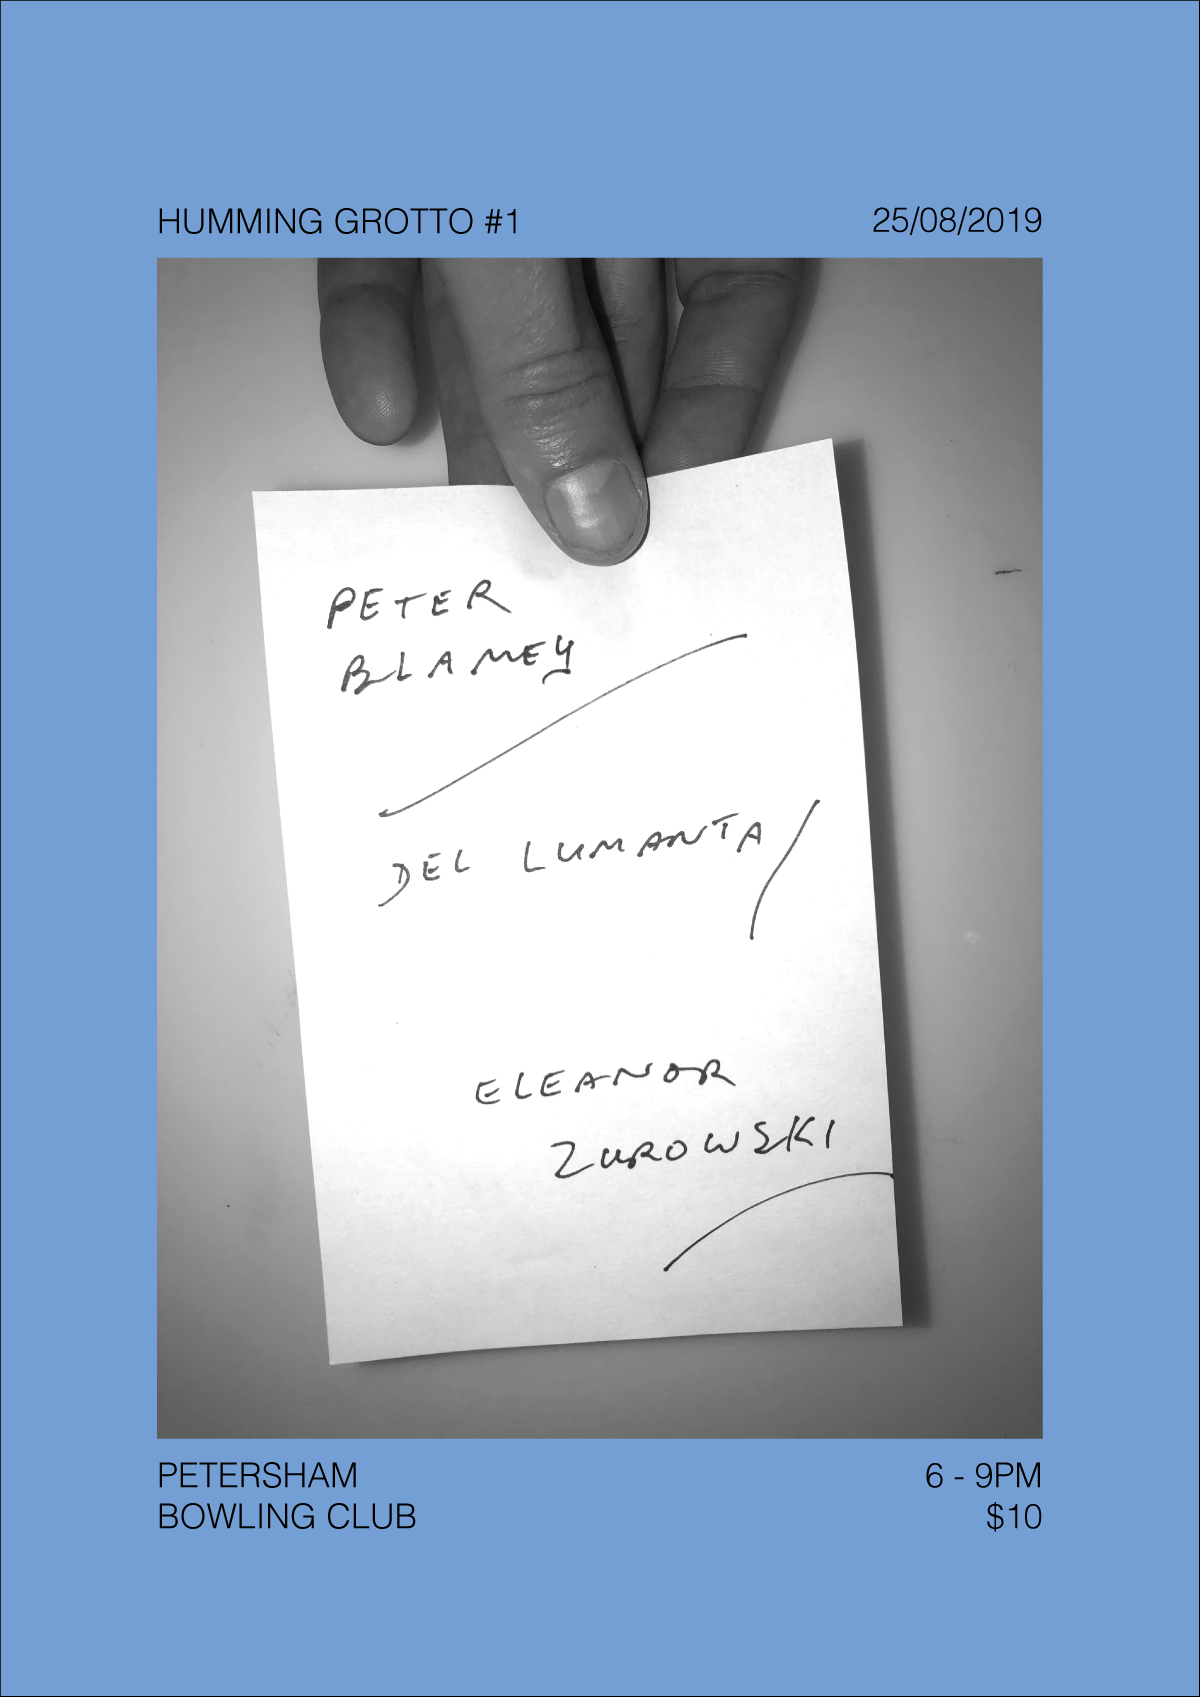 HUMMING GROTTO #1
25/08/2019
PETER
BLAMEY
DEL LUMANTA
ELEANOR
ZUROWSKI
PETERSHAM
BOWLING CLUB
6 - 9PM
$10